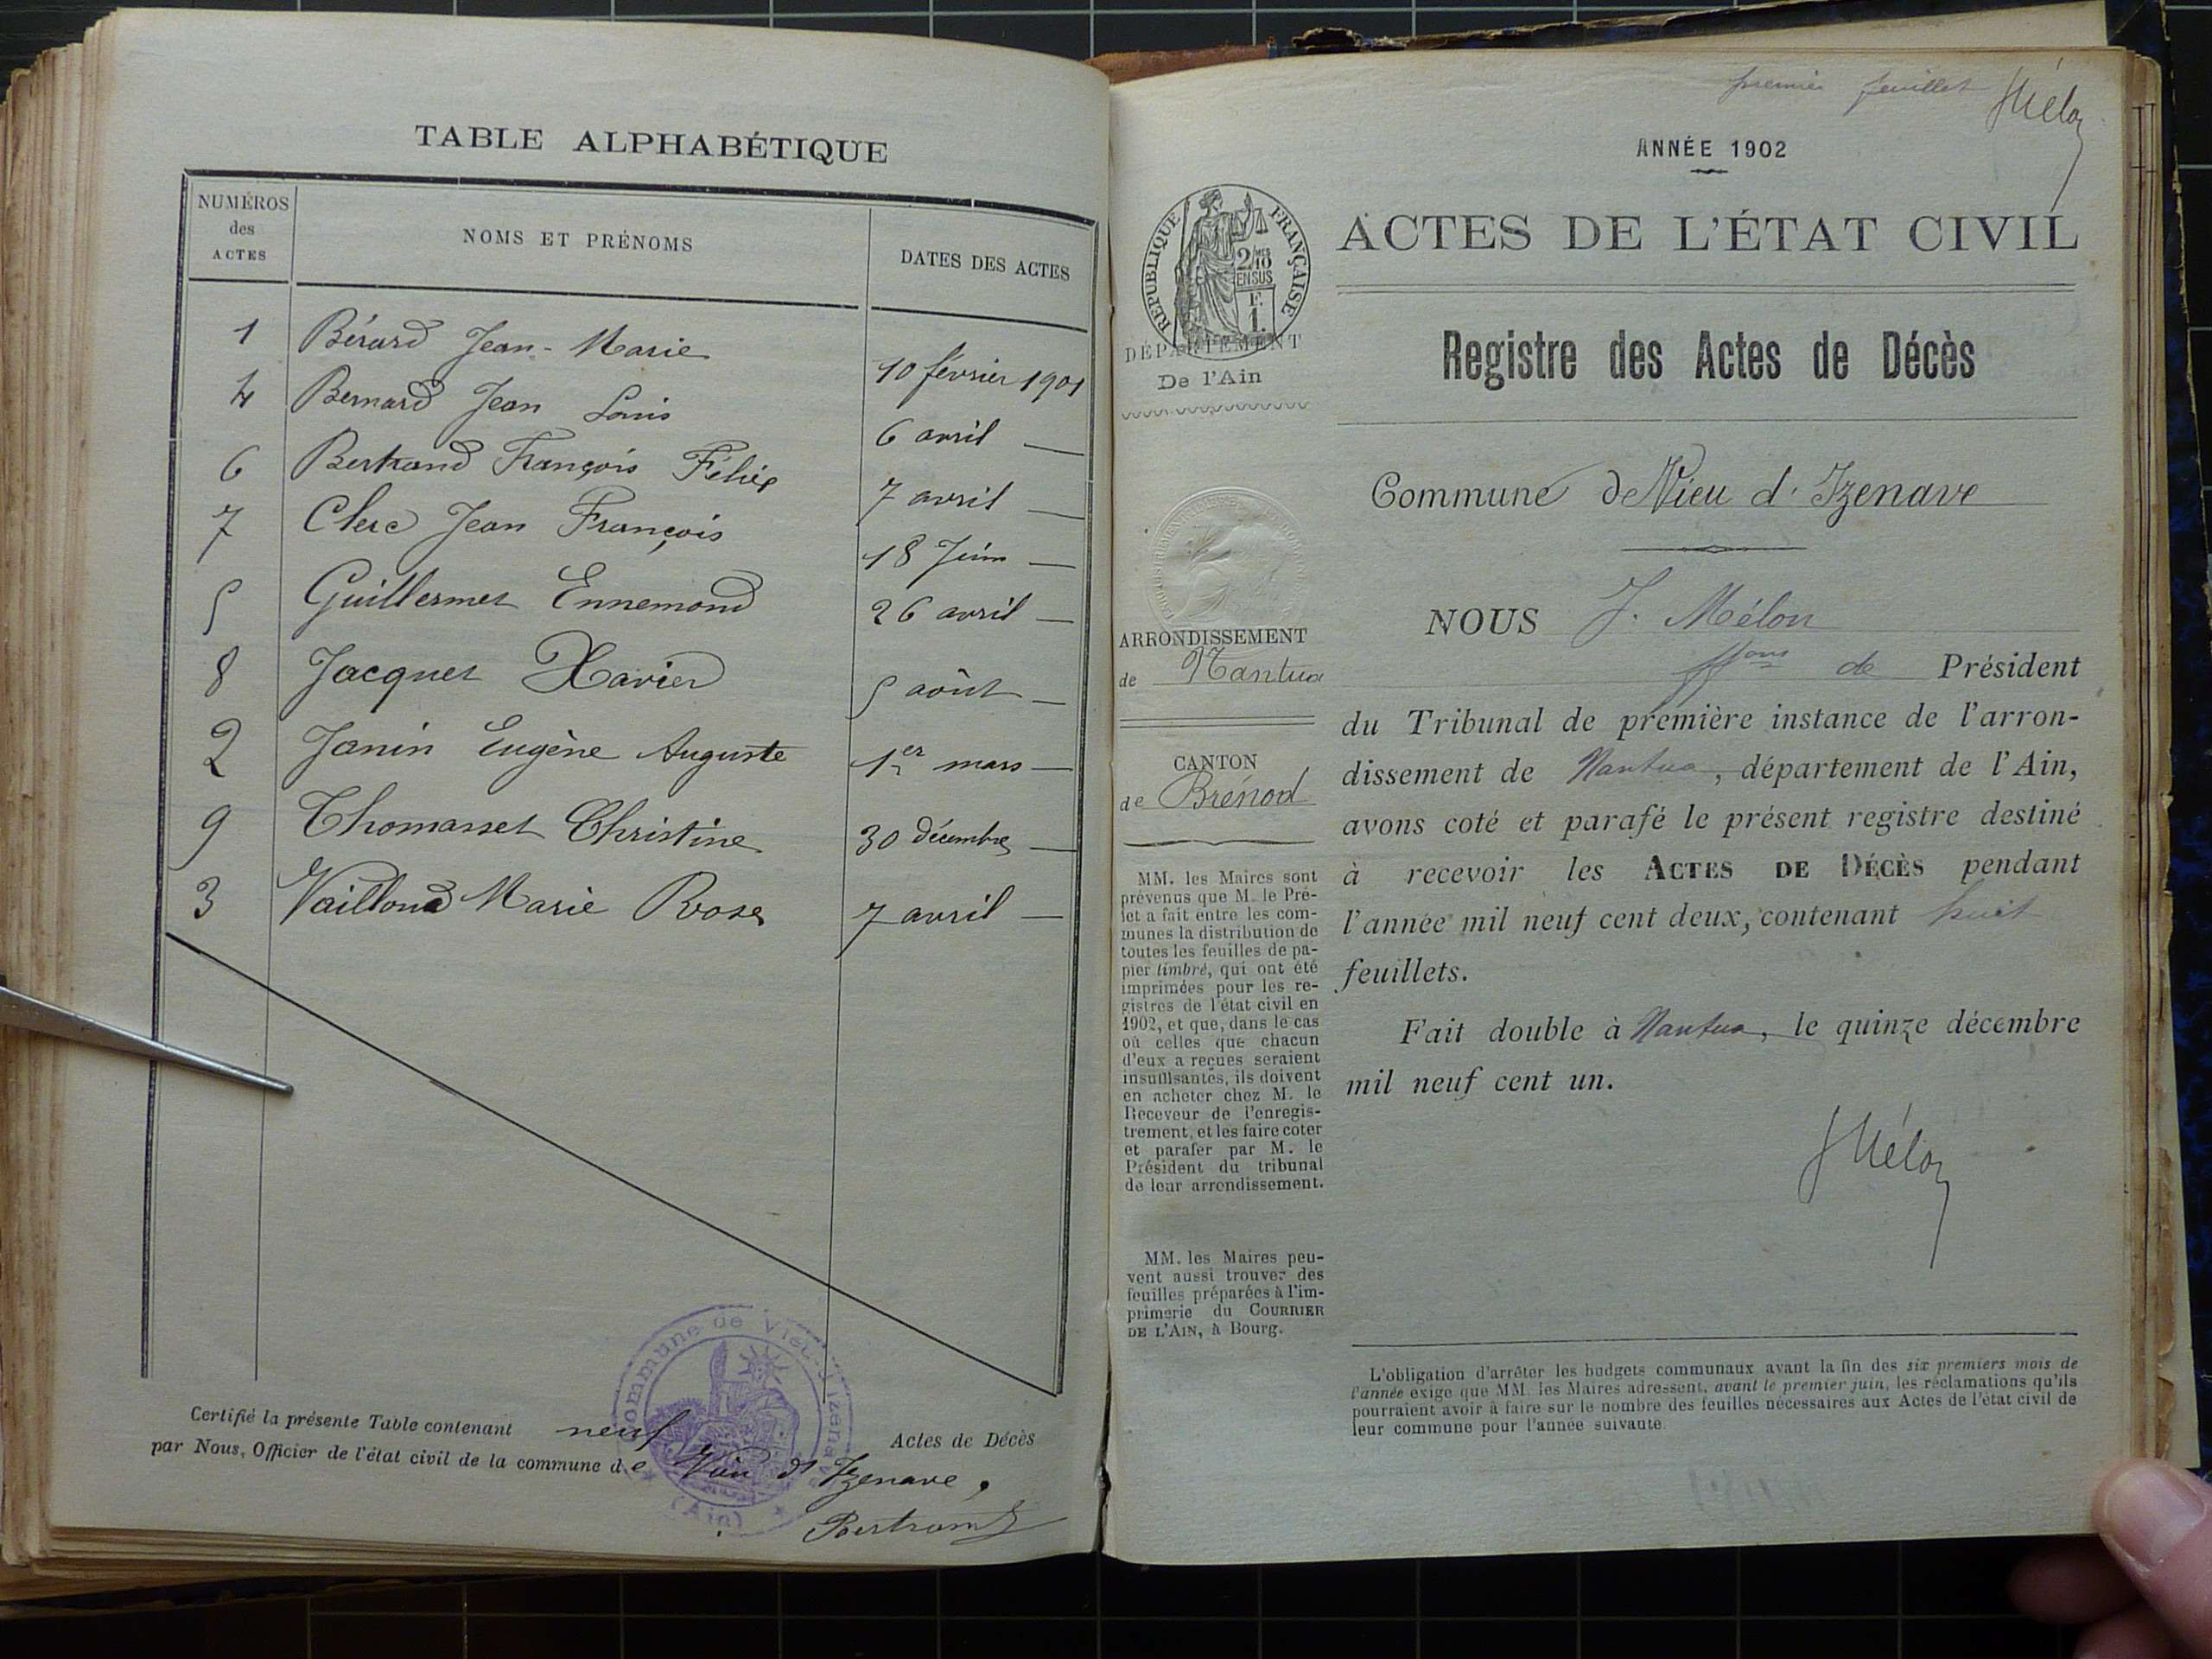 TABLE ALPHABÉTIQUE
NUMÉROS des ACTES
NOMS ET PRÉNOMS
DATES DES ACTES
1 Bérard Jean-Marie 10 février 1901
4 Bernard Jean Louis 6 avril —
6 Bertrand François Félix 7 avril —
7 Clerc Jean François 18 Juin —
5 Guillermet Ennemond 26 avril —
8 Jacquet Xavier 5 août —
2 Janin Eugène Auguste 1er mars —
9 Thomasset Christine 30 décembre —
3 Vailloud Marie Rose 7 avril —
Certifié la présente Table contenant neuf Actes de Décès
par Nous, Officier de l'état civil de la commune de Vieu d'Izenave,
Bertrand
Commune de Vieu d'Izenave
(Ain)
premier feuillet JMélon
ANNÉE 1902
ACTES DE L'ÉTAT CIVIL
RÉPUBLIQUE FRANÇAISE
2/10
EN SUS
F.
1.
DÉPARTEMENT
De l'Ain
Registre des Actes de Décès
Commune de Vieu d'Izenave
ARRONDISSEMENT
de Nantua
CANTON
de Brénod
MM. les Maires sont
prévenus que M. le Pré-
fet a fait entre les com-
munes la distribution de
toutes les feuilles de pa-
pier timbré, qui ont été
imprimées pour les re-
gistres de l'état civil en
1902, et que, dans le cas
où celles que chacun
d'eux a reçues seraient
insuffisantes, ils doivent
en acheter chez M. le
Receveur de l'enregis-
trement, et les faire coter
et parafer par M. le
Président du tribunal
de leur arrondissement.
MM. les Maires peu-
vent aussi trouver des
feuilles préparées à l'im-
primerie du COURRIER
DE L'AIN, à Bourg.
NOUS J. Mélon
ffons de Président
du Tribunal de première instance de l'arron-
dissement de Nantua, département de l'Ain,
avons coté et parafé le présent registre destiné
à recevoir les ACTES DE DÉCÈS pendant
l'année mil neuf cent deux, contenant huit
feuillets.
Fait double à Nantua, le quinze décembre
mil neuf cent un.
JMélon
L'obligation d'arrêter les budgets communaux avant la fin des six premiers mois de
l'année exige que MM. les Maires adressent, avant le premier juin, les réclamations qu'ils
pourraient avoir à faire sur le nombre des feuilles nécessaires aux Actes de l'état civil de
leur commune pour l'année suivante.